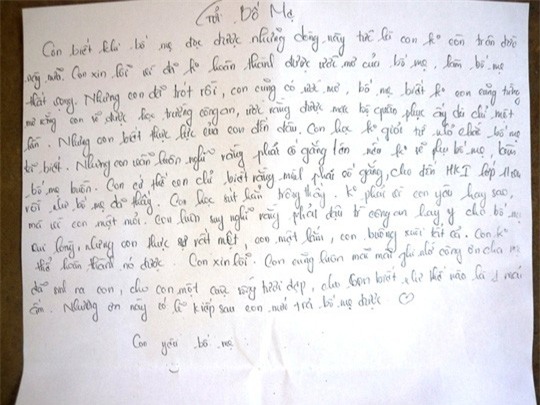 Gửi Bố Mẹ
Con biết khi bố mẹ đọc được những dòng này tức là con k còn trên đời
này nữa. Con xin lỗi vì đã k hoàn thành được ước mơ của bố mẹ, làm bố mẹ
thất vọng. Nhưng con đã trót rồi, con cũng có ước mơ, bố mẹ biết k con cũng từng
mơ rằng con sẽ được học trường công an, ước rằng được mặc bộ quân phục ấy dù chỉ một
lần. Nhưng con biết thực lực của con đến đâu. Con học k giỏi từ nhỏ chắc bố mẹ
đã biết. Nhưng con vẫn luôn nghĩ rằng phải cố gắng lên nếu k sẽ phụ bố mẹ, làm
bố mẹ buồn. Con cứ thế con chỉ biết rằng mình phải cố gắng, cho đến HKI lớp
rồi như bố mẹ đã thấy. Con học sút hẳn trông thấy. K phải vì con yêu hay sao,
mà vì con mệt mỏi. Con luôn suy nghĩ rằng phải đậu trường công an hay y cho bố mẹ
vui lòng, nhưng con thực sự rất mệt, con mệt lắm, con buông xuôi tất cả. Con k
thể hoàn thành nó được. Con xin lỗi. Con cũng luôn mãi mãi ghi nhớ công ơn cha mẹ
đã sinh ra con, cho con một cuộc sống tươi đẹp, cho con biết như thế nào là mái
ấm. Nhưng ơn này có lẽ kiếp sau con mới trả bố mẹ được
Con yêu bố mẹ